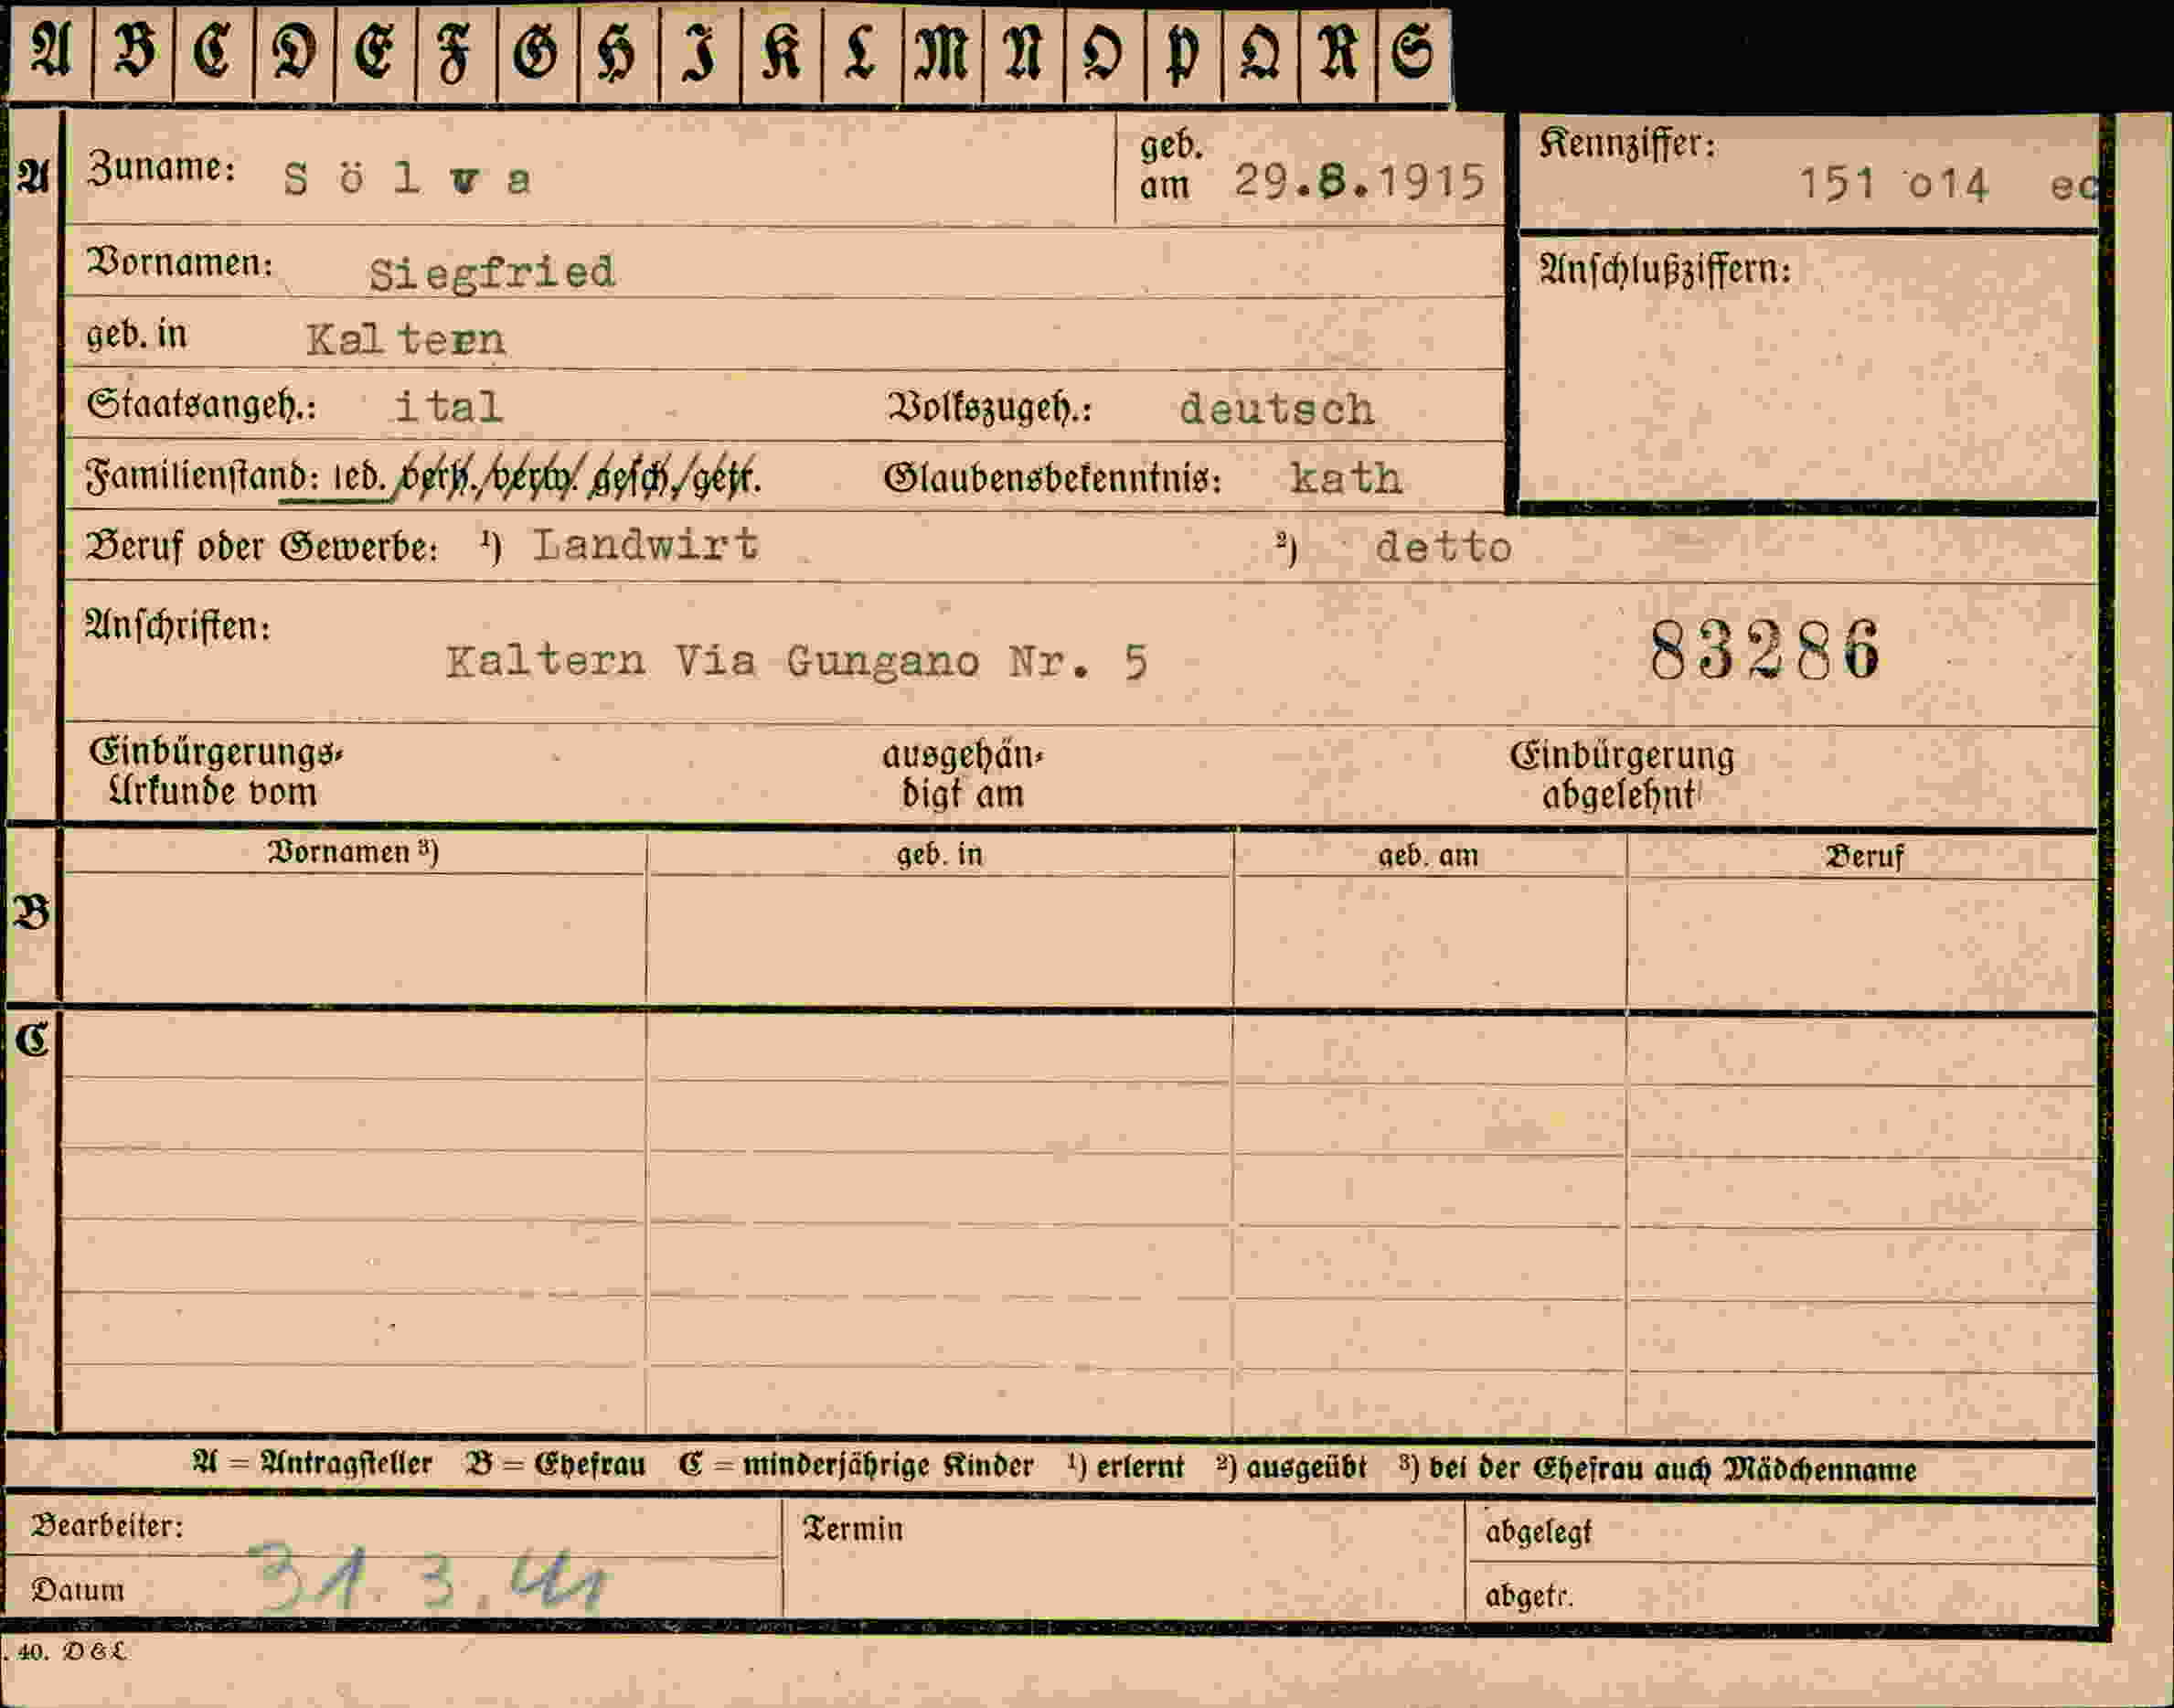 A B C D E F G H I K L M N O P Q R S
A Zuname: Sölva geb. am 29.8.1915 Kennziffer: 151 o14
Vornamen: Siegfried Anschlußziffern:
geb. in Kaltern
Staatsangeh.: ital Volkszugeh.: deutsch
Familienstand: led. verh./verw./gesch./getr. Glaubensbekenntnis: kath
Beruf oder Gewerbe: ¹) Landwirt ²) detto
Anschriften:
Kaltern Via Gungano Nr. 5 83286
Einbürgerungs- ausgehän- Einbürgerung
Urkunde vom digt am abgelehnt
Vornamen ³) geb. in geb. am Beruf
B
C
A = Antragsteller B = Ehefrau C = minderjährige Kinder ¹) erlernt ²) ausgeübt ³) bei der Ehefrau auch Mädchenname
Bearbeiter: Termin abgelegt
Datum 31.3.41 abgetr.
. 40. D & L